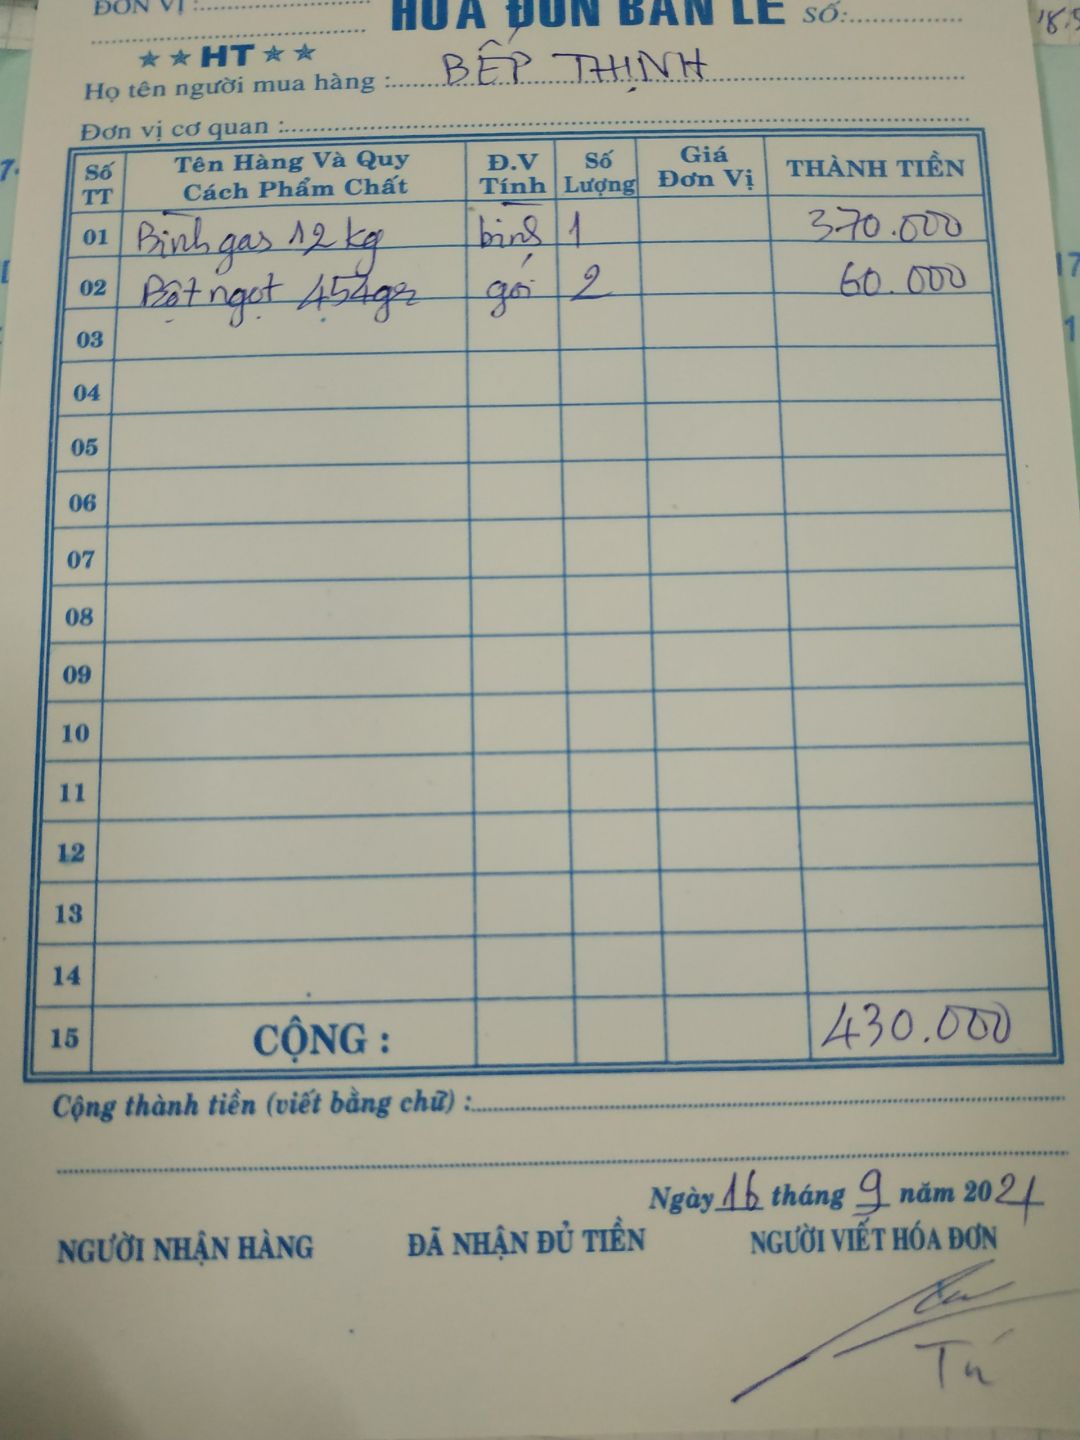 ĐƠN VỊ :
HÓA ĐƠN BÁN LẺ SỐ:
HT
Họ tên người mua hàng : BẾP THỊNH
Đơn vị cơ quan :
Số TT Tên Hàng Và Quy Cách Phẩm Chất Đ.V Tính Số Lượng Giá Đơn Vị THÀNH TIỀN
01 Bình gas 12 kg bình 1 370.000
02 Bột ngọt 454gr gói 2 60.000
03
04
05
06
07
08
09
10
11
12
13
14
15 CỘNG : 430.000
Cộng thành tiền (viết bằng chữ) :
Ngày 16 tháng 9 năm 2021
NGƯỜI NHẬN HÀNG ĐÃ NHẬN ĐỦ TIỀN NGƯỜI VIẾT HÓA ĐƠN
Tú